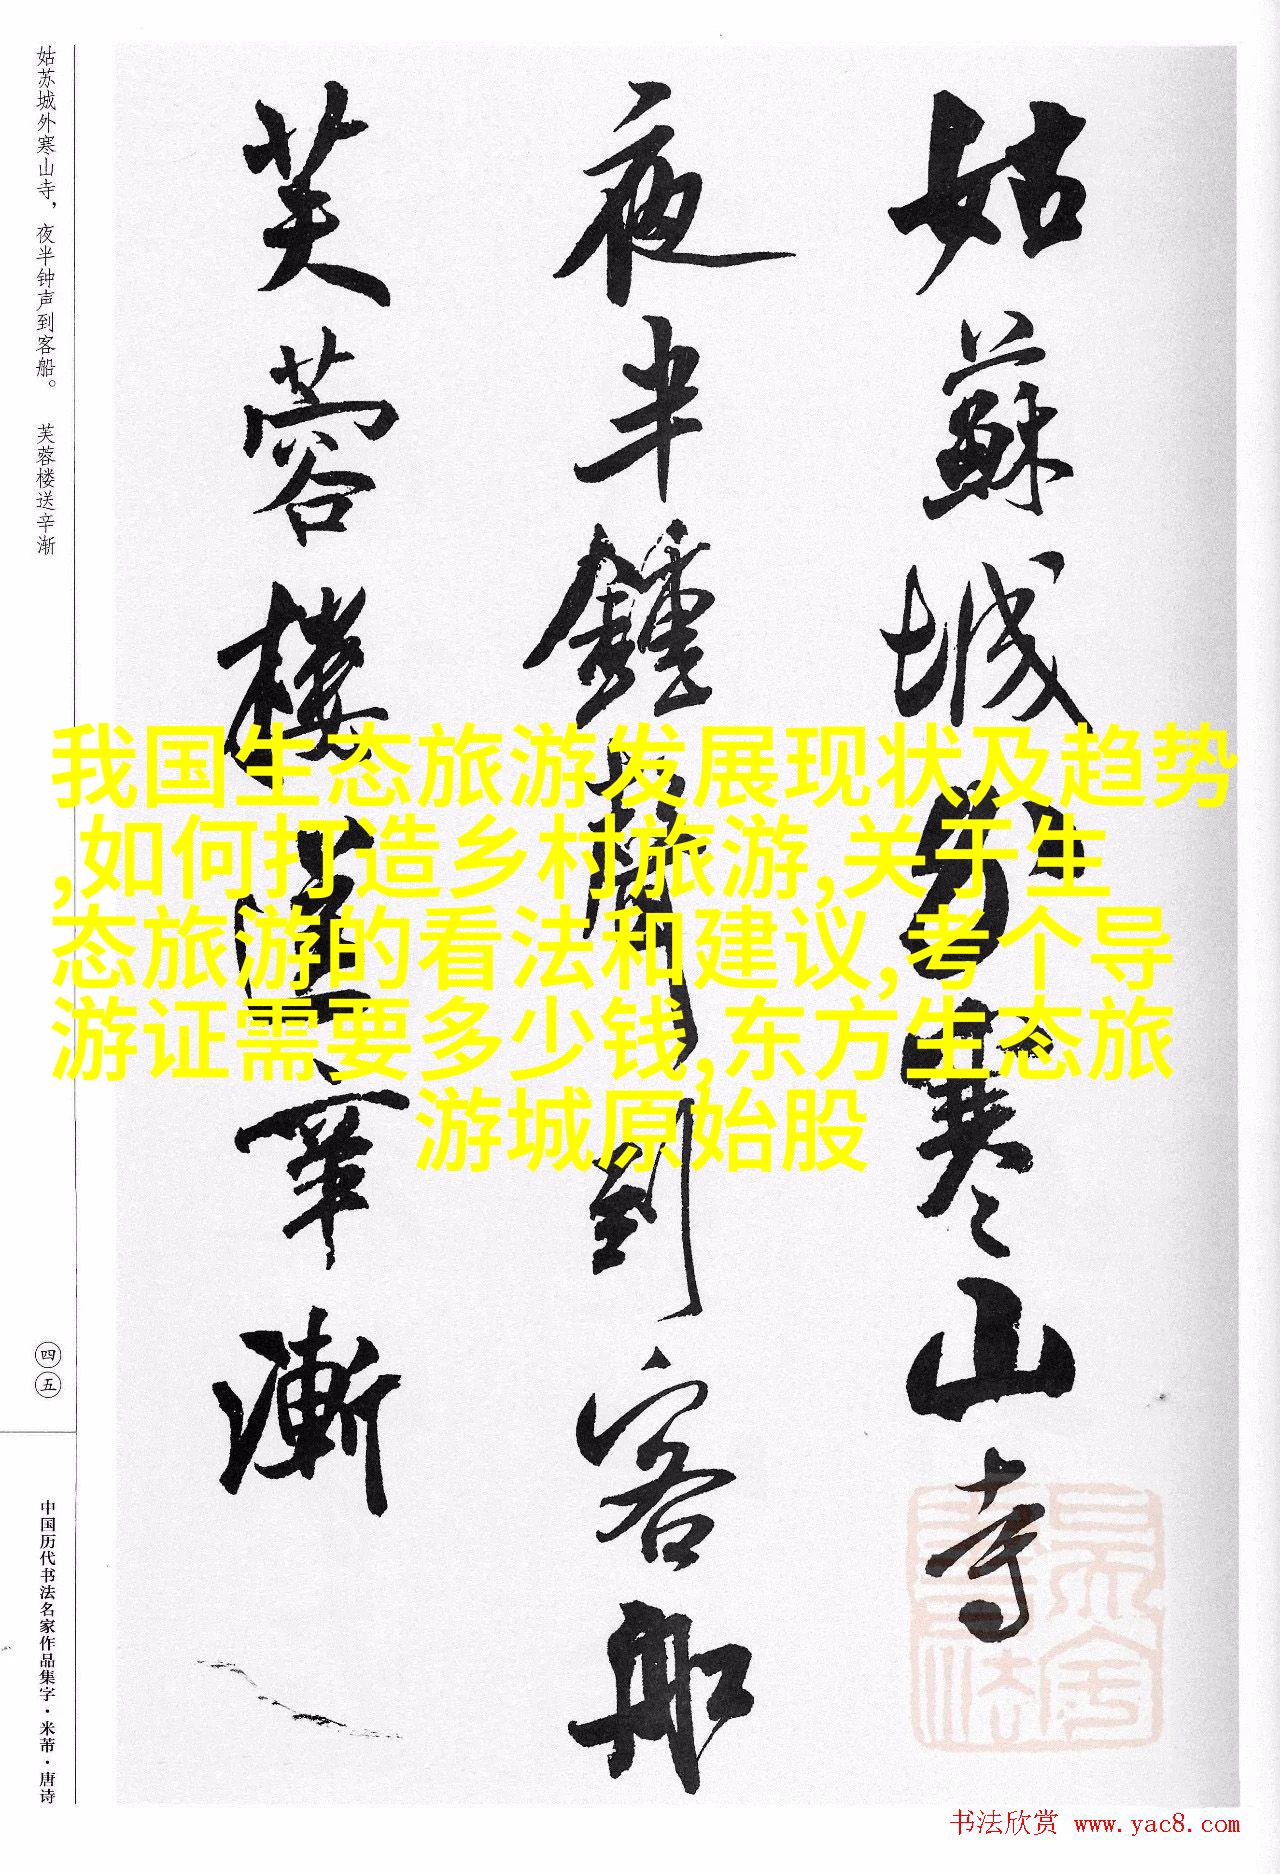 姑苏城外寒山寺，夜半钟声到客船。 芙蓉楼送辛渐
姑蘇城外寒山寺
夜半鍾聲到客船
芙蓉樓送辛漸
我国生态旅游发展现状及趋势
,如何打造乡村旅游,关于生
态旅游的看法和建议,考个导
游证需要多少钱,东方生态旅
游城原始股
四五
中国历代书法名家作品集字·米芾·唐诗
书法欣赏 www.yac8.com